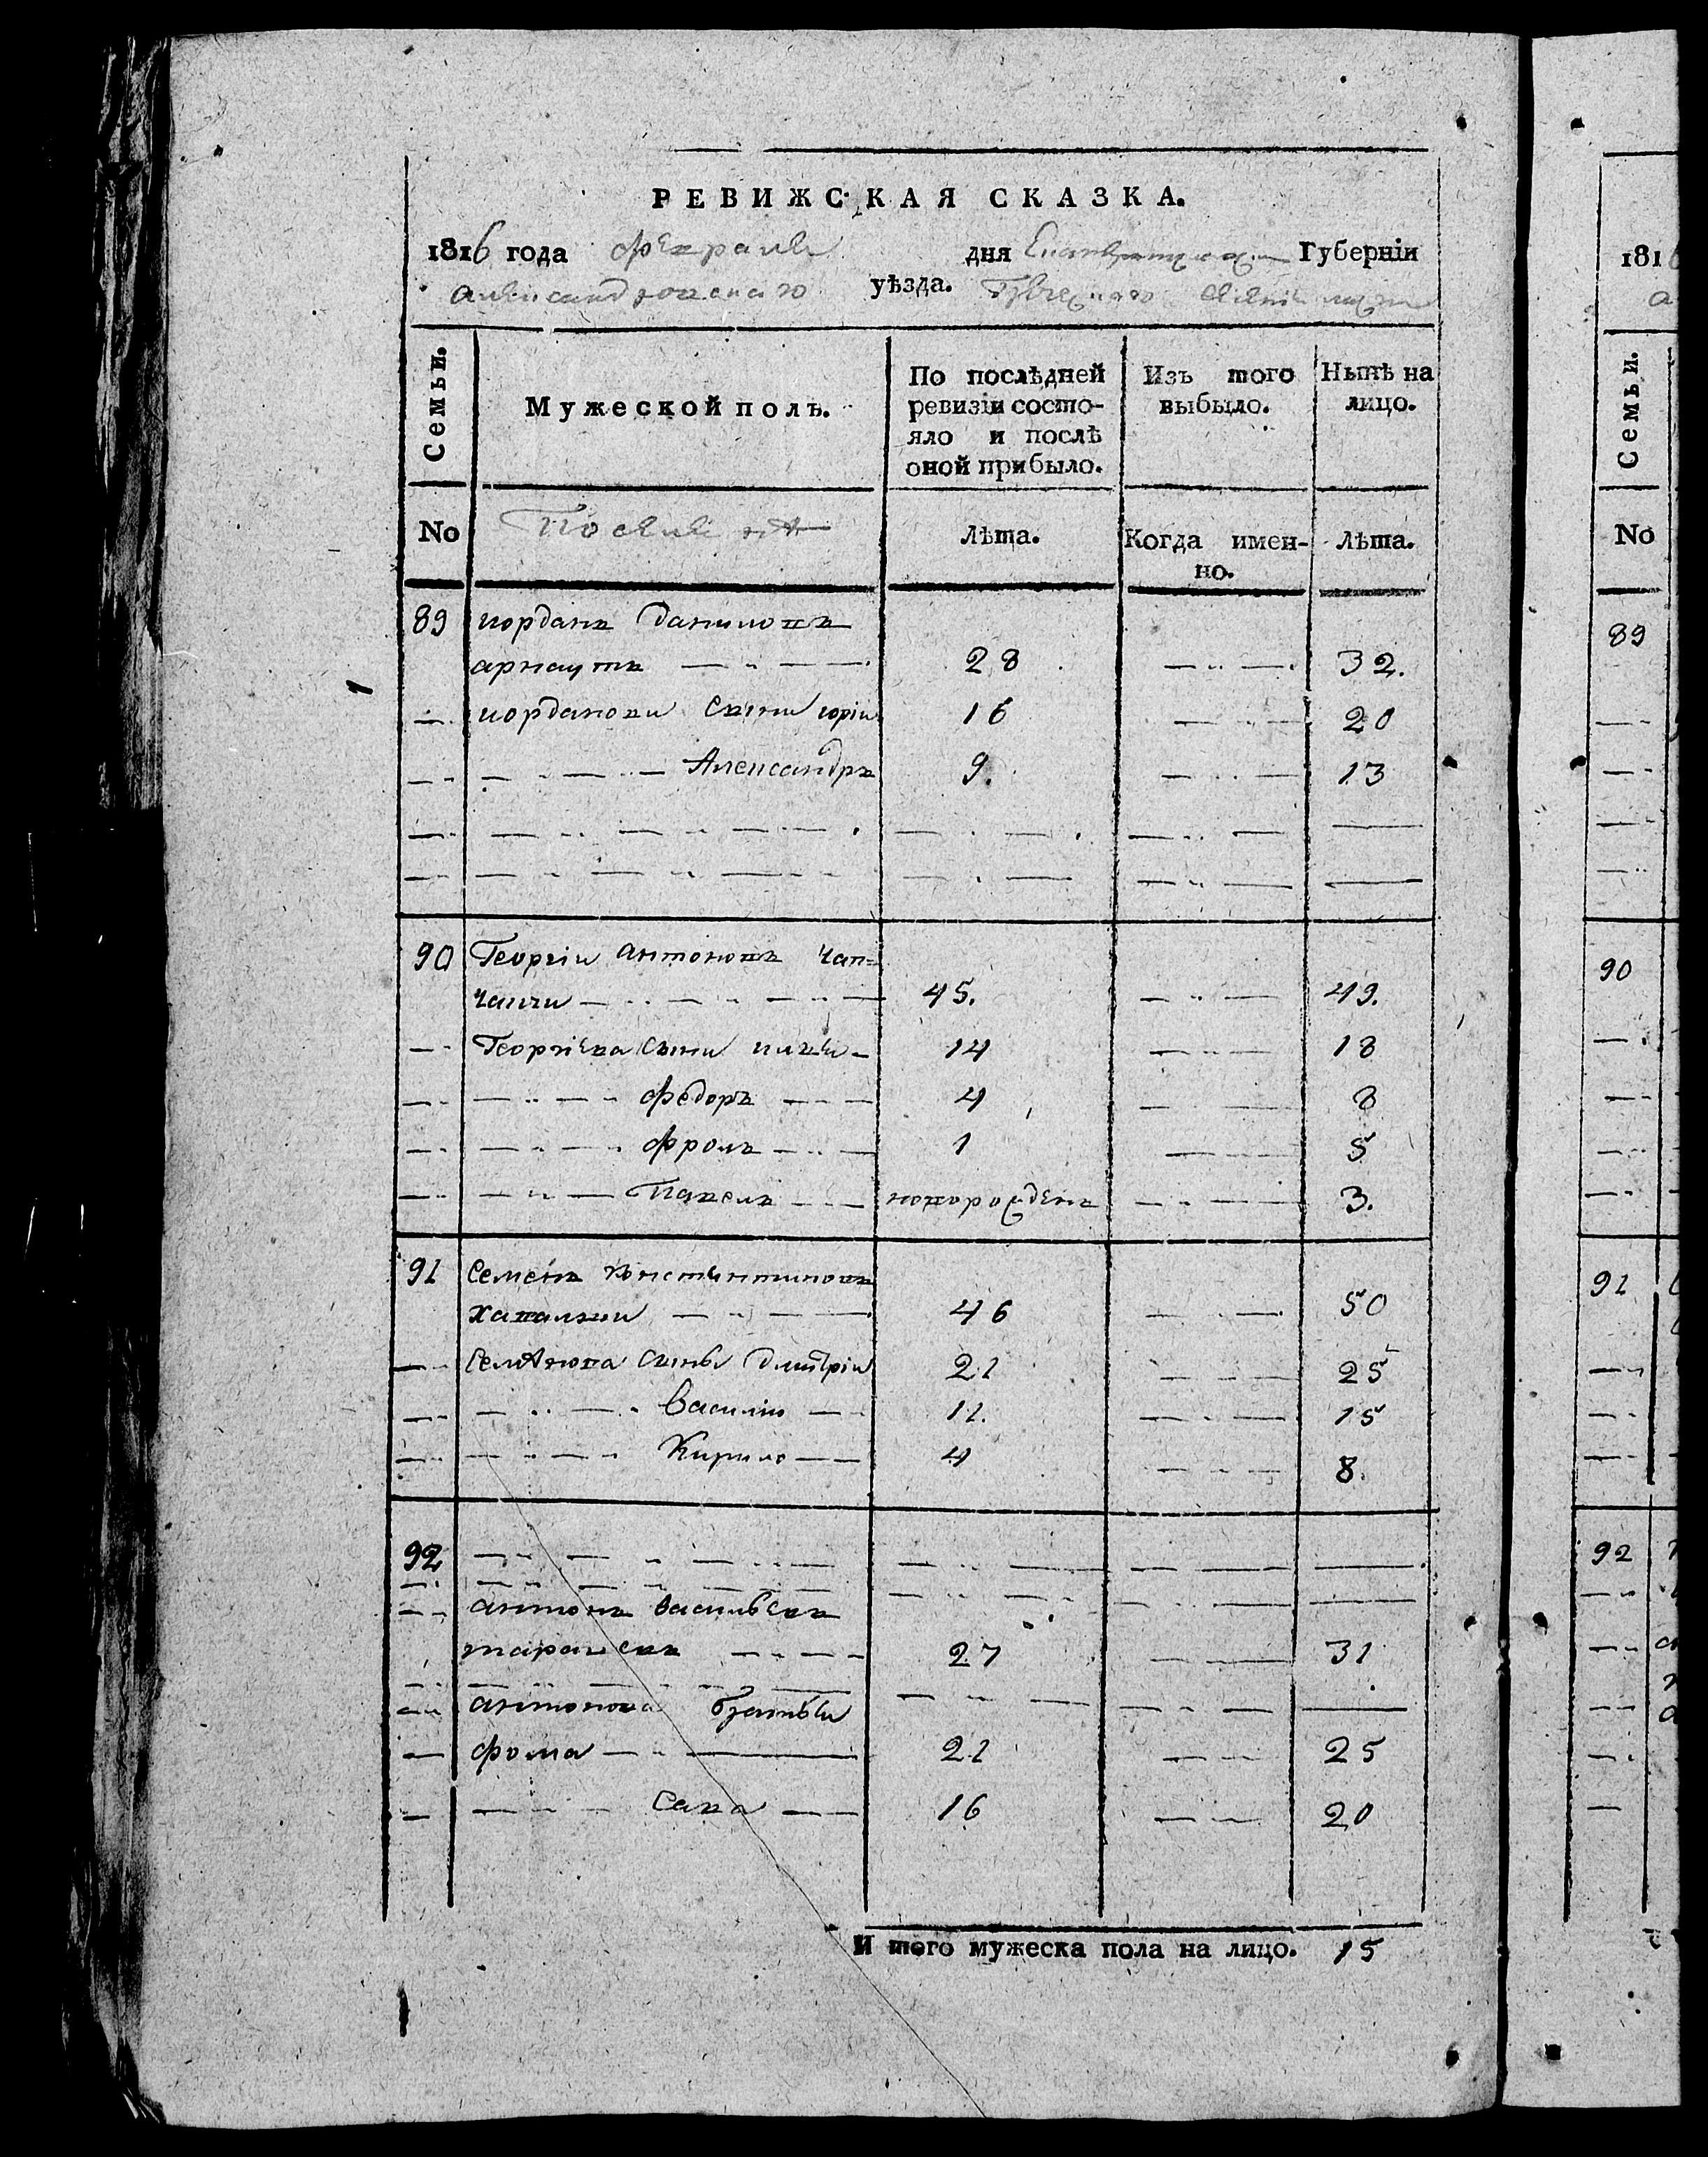 РЕВИЖСКАЯ СКАЗКА.
1816 года февраля дня Екатеринославской Губерніи
александровскаго уѣзда.
Семьи.
Мужеской полъ.
По послѣдней
ревизіи состо-
яло и послѣ
оной прибыло.
Изъ того
выбыло.
Нынѣ на
лицо.
No
Лѣта.
Когда имен-
но.
Лѣта.
89 иорданъ даниловъ
арнаутъ 28 32.
иорданови сыни юріи 16 20
Александръ 9. 13
90 Георгіи антоновъ чап=
чаичи 45. 49.
Георгіева сыни 14 18
федоръ 4 8
фролъ 1 5
Павелъ новорожденъ 3.
91 Семенъ константиновъ
46 50
Семѧнова сынъ дмитріи 21 25
василіи 11. 15
Кирило 4 8.
92
антонъ васильевъ
27 31
антонова братьи
фома 21 25
сава 16 20
И того мужеска пола на лицо. 15
181
а
Семьи.
No
89
90
91
92